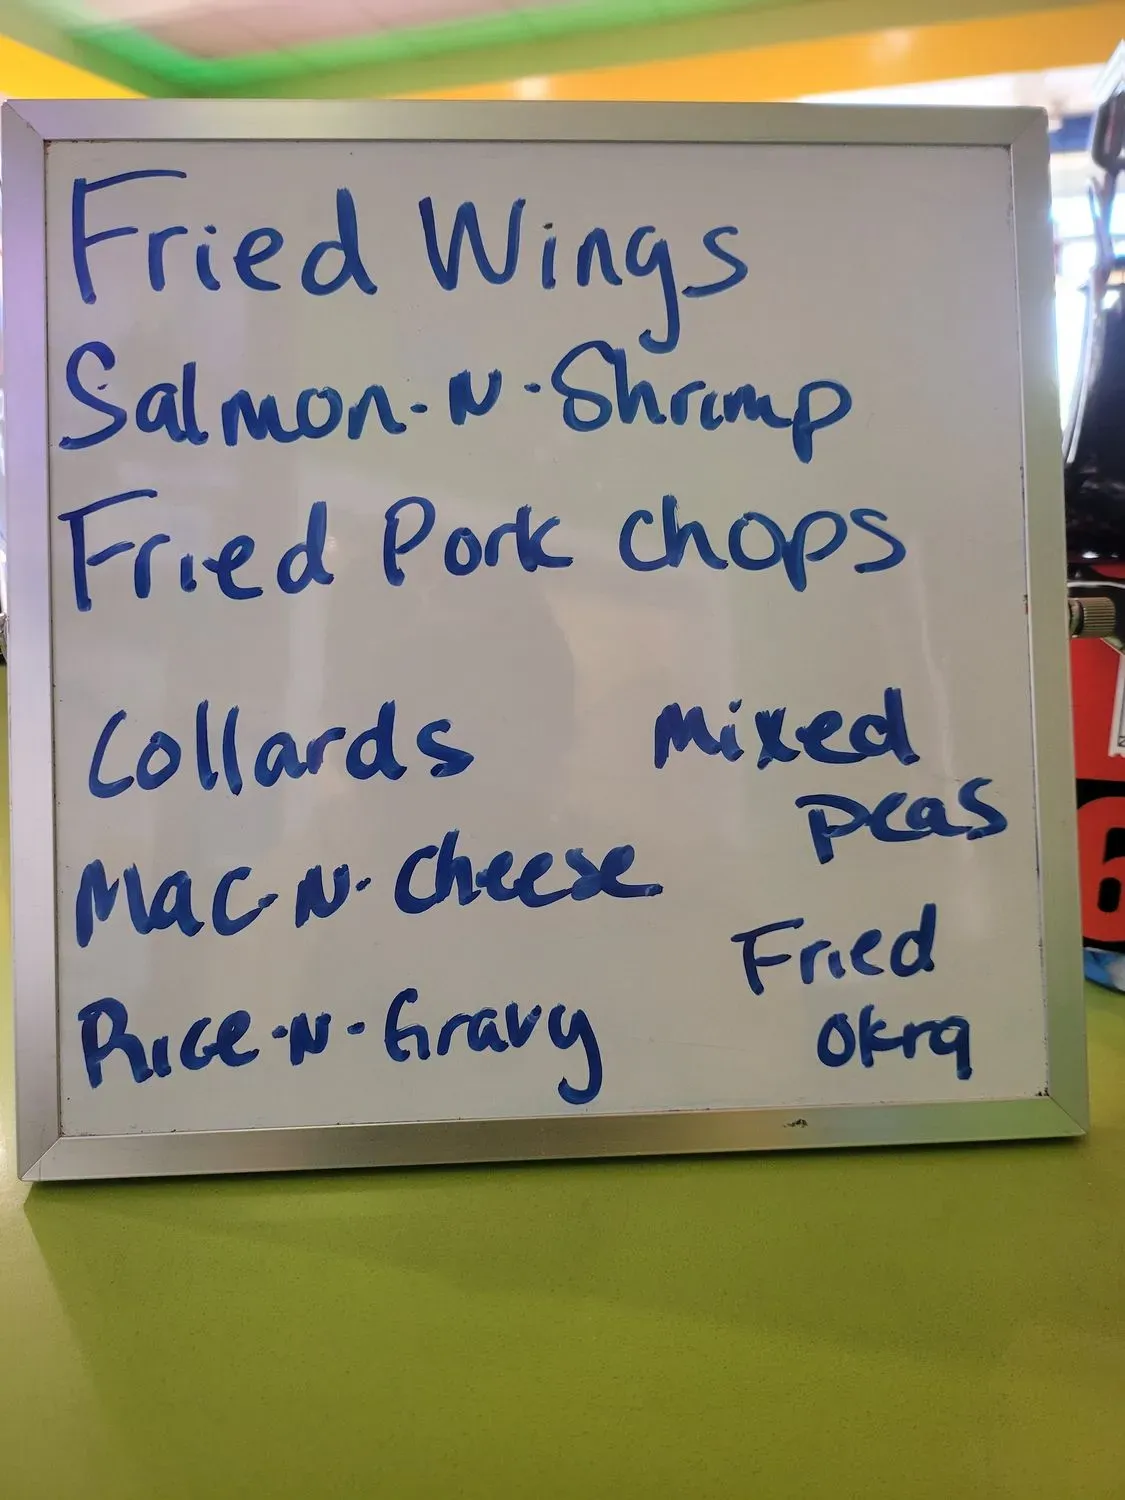 Fried Wings
Salmon-N-Shrimp
Fried Pork chops
Collards
Mac-N-Cheese
Rice-N-Gravy
Mixed
peas
Fried
okra
6